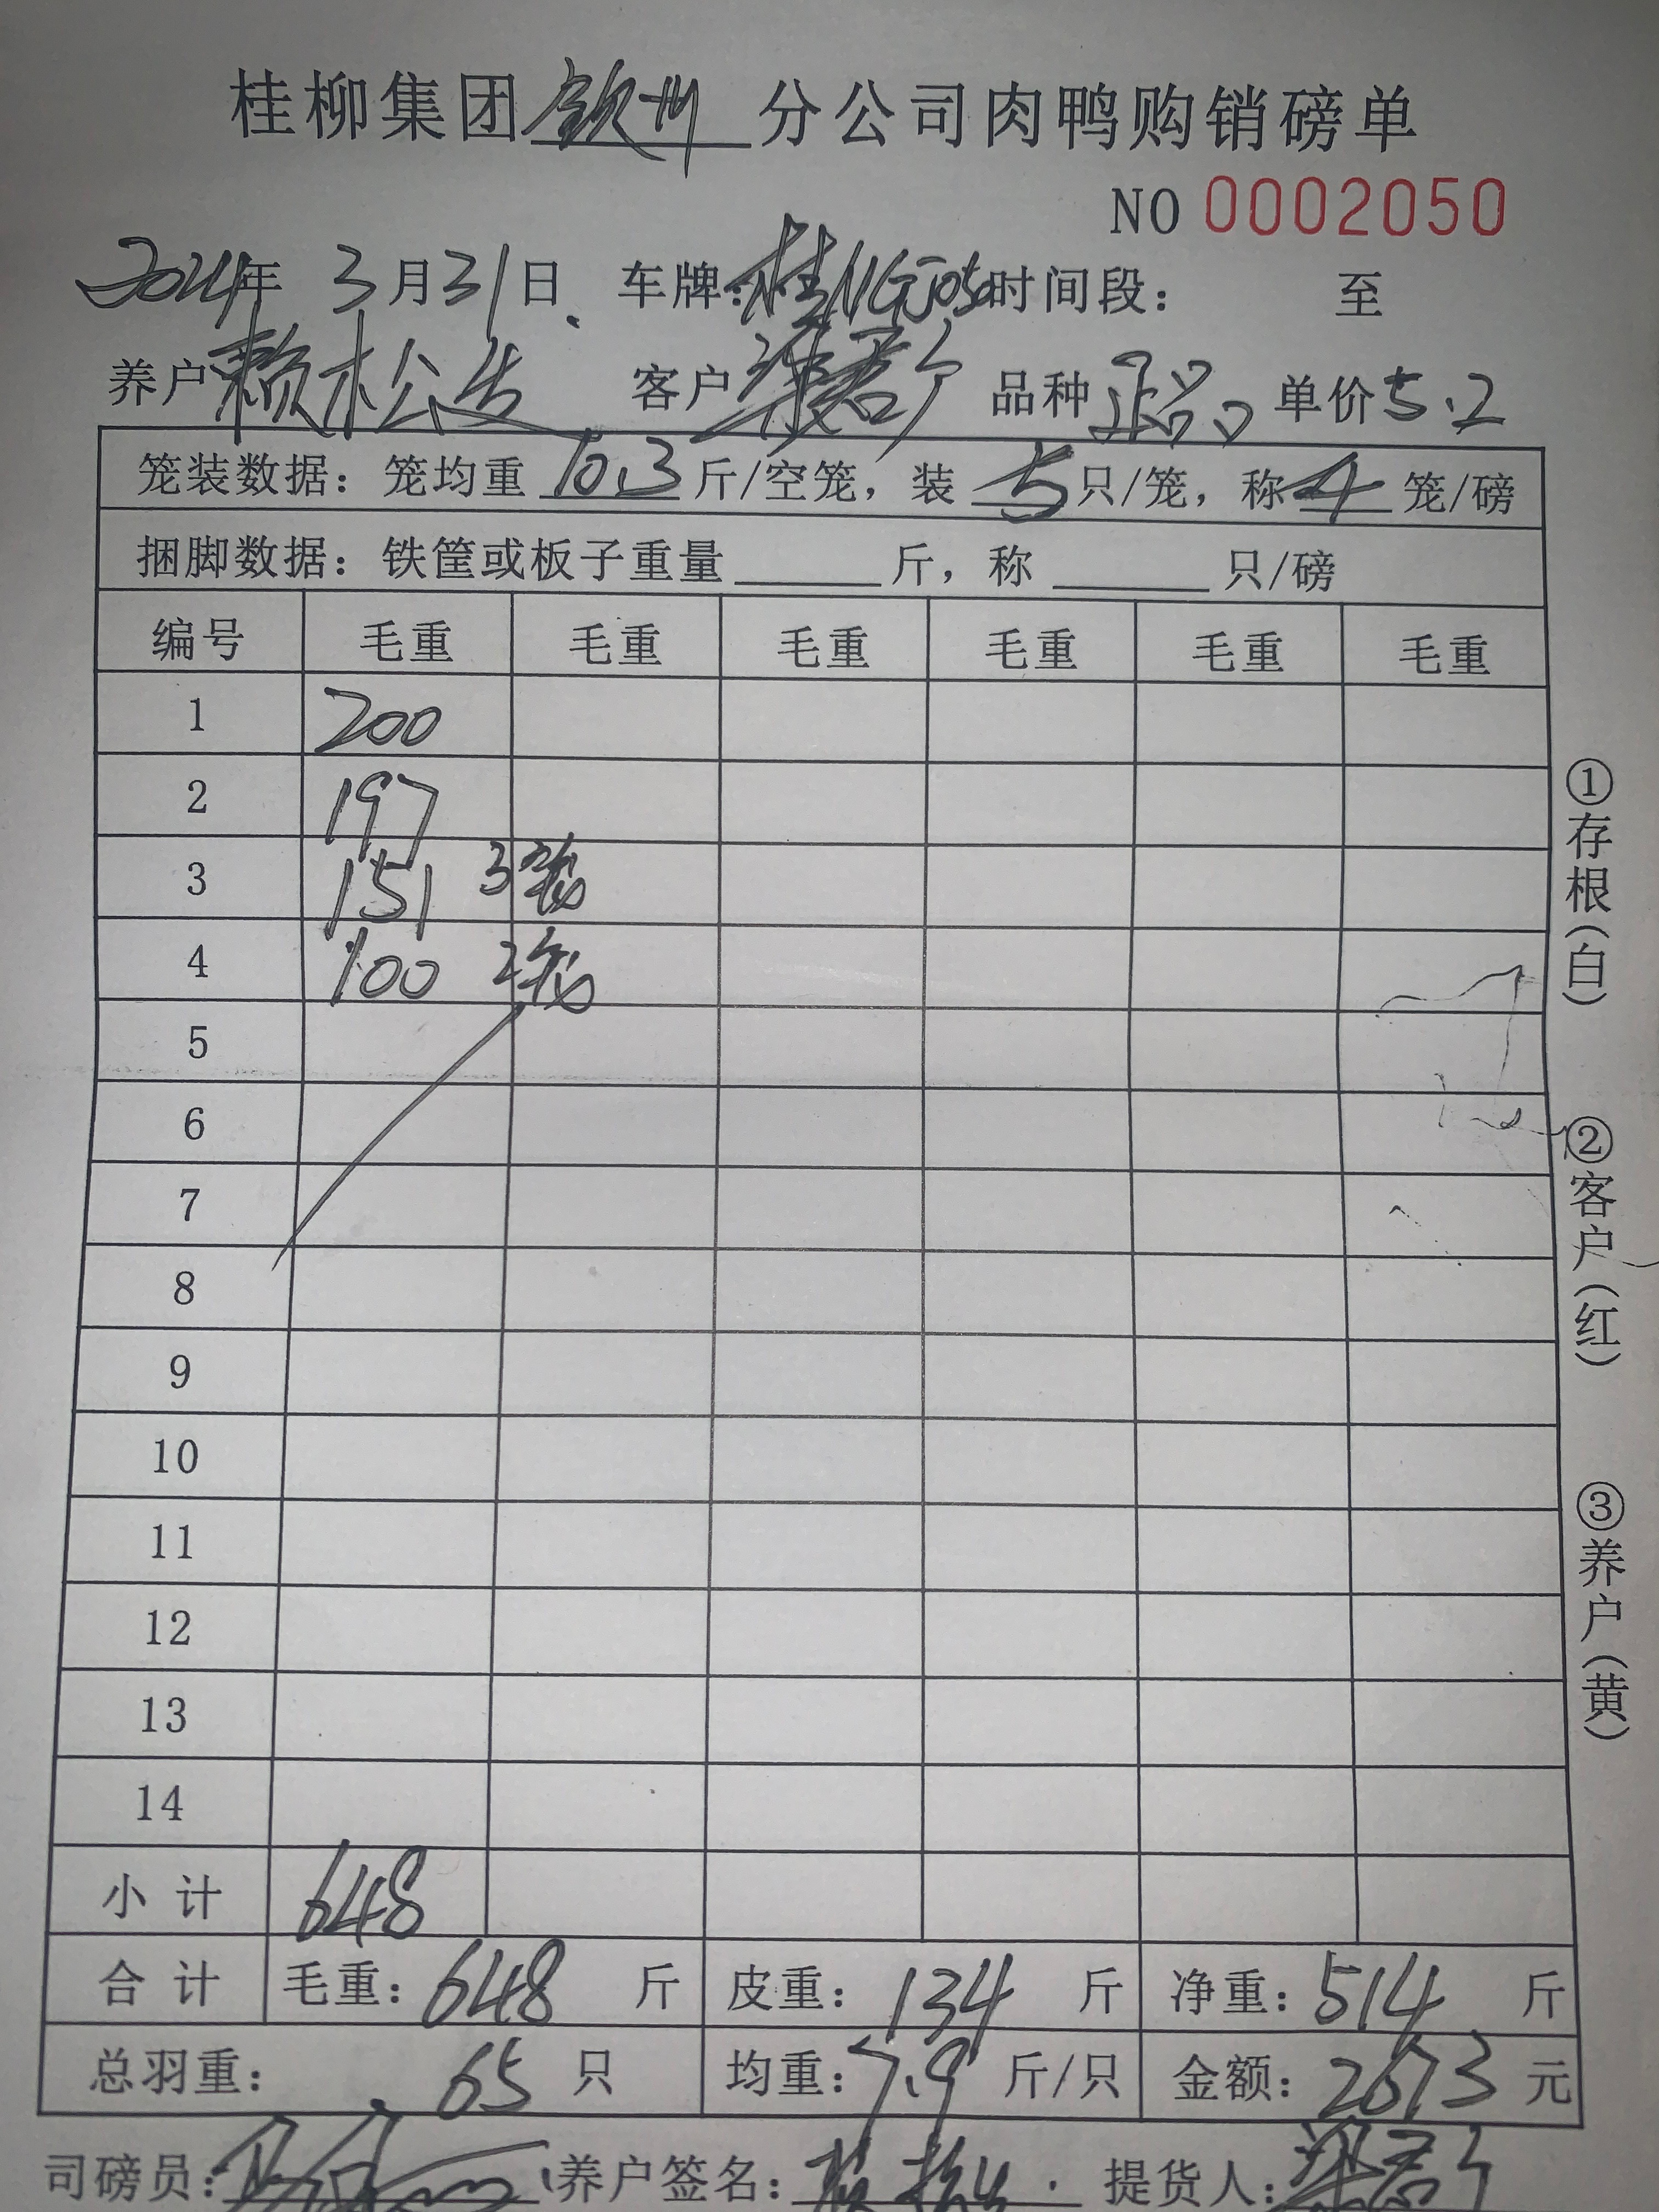 桂柳集团钦州分公司肉鸭购销磅单
NO 0002050
2024年 3月31日 车牌:桂NG 时间段: 至
养户赖松 客户梁君 品种 单价5.2
笼装数据:笼均重 10.3 斤/空笼,装 5 只/笼,称 4 笼/磅
捆脚数据:铁筐或板子重量 斤,称 只/磅
编号 毛重 毛重 毛重 毛重 毛重 毛重
1 200
2 197
3 151 3笼
4 100 2笼
5
6
7
8
9
10
11
12
13
14
小计 648
合计 毛重:648 斤 皮重:134 斤 净重:514 斤
总羽重: 65 只 均重:7.9 斤/只 金额:2673 元
司磅员: 养户签名: 提货人:梁君
①存根(白)
②客户(红)
③养户(黄)